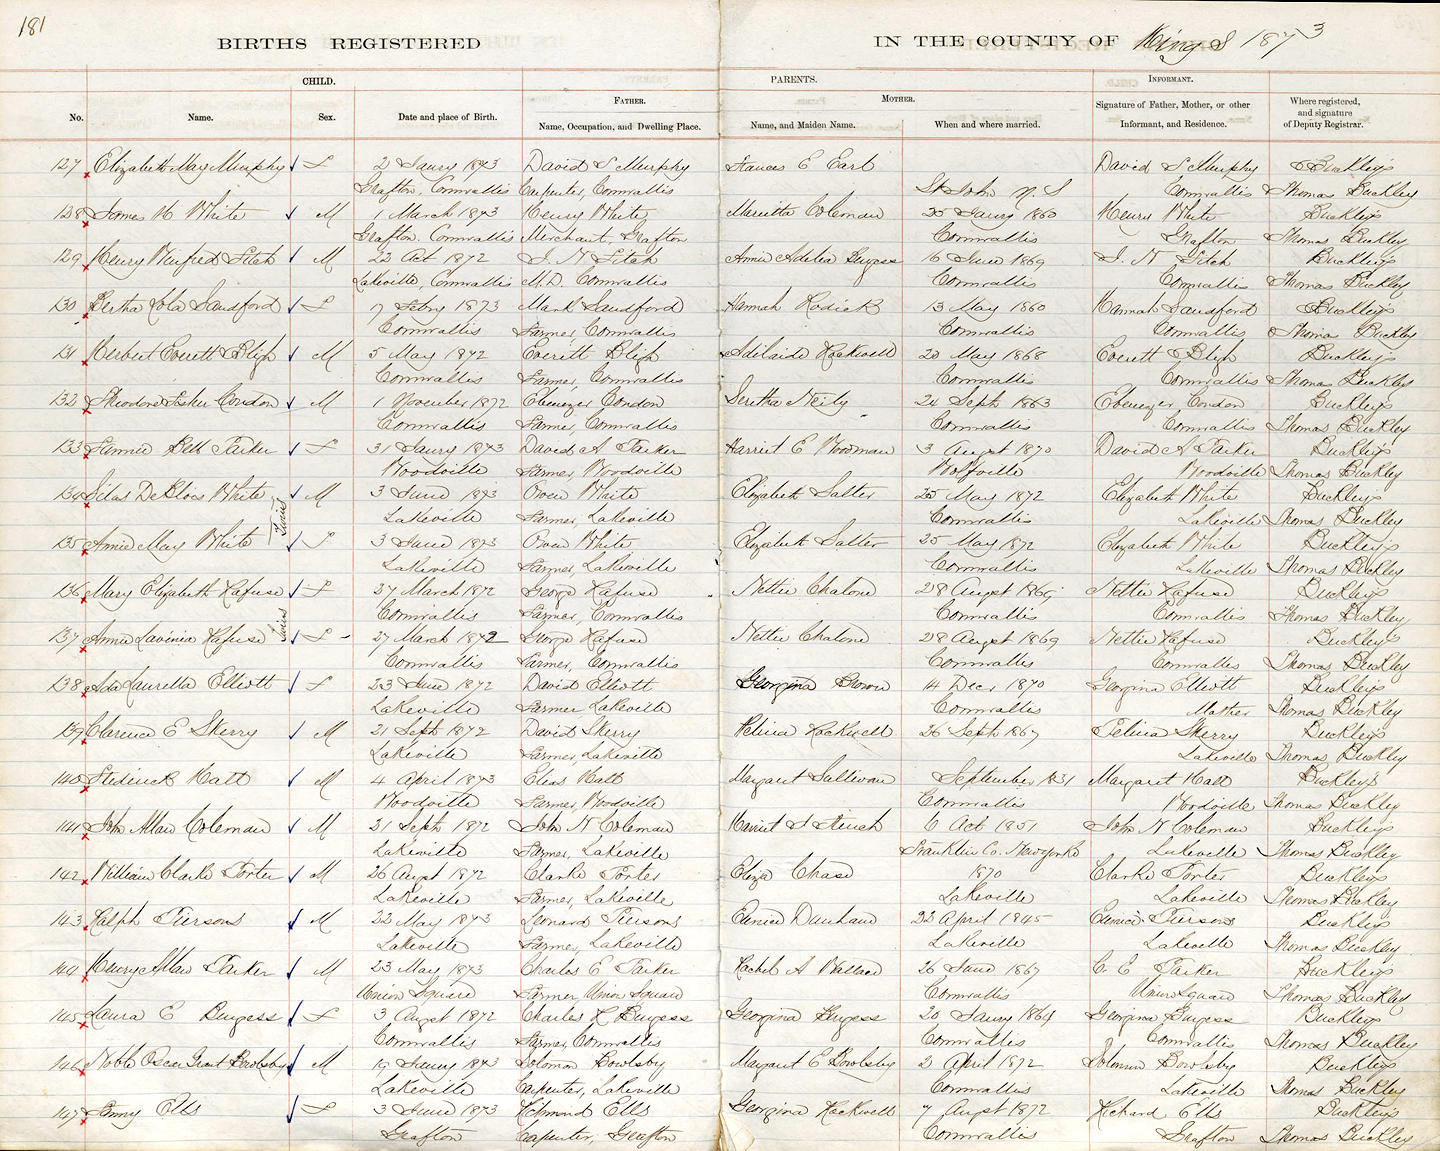 181
BIRTHS REGISTERED IN THE COUNTY OF Kings 1873
CHILD. PARENTS. INFORMANT.
FATHER. MOTHER.
No. Name. Sex. Date and place of Birth. Name, Occupation, and Dwelling Place. Name, and Maiden Name. When and where married. Signature of Father, Mother, or other Informant, and Residence. Where registered, and signature of Deputy Registrar.
127 Elizabeth May Murphy F 2 Jany 1873 David S Murphy Frances E Earl David S Murphy Buckley's
Grafton, Cornwallis Carpenter, Cornwallis St John N. S Cornwallis Thomas Buckley
128 James H White M 1 March 1873 Henry White Marietta Coleman 25 Jany 1860 Henry White Buckley's
Grafton, Cornwallis Merchant, Grafton Cornwallis Grafton Thomas Buckley
129 Henry Winfred Fitch M 22 Oct 1872 I. N Fitch Annie Adelia Burgess 16 June 1869 I. N Fitch Buckley's
Lakeville, Cornwallis M.D. Cornwallis Cornwallis Cornwallis Thomas Buckley
130 Bertha Iola Sandford F 7 Feby 1873 Mark Sandford Hannah Redick 13 May 1860 Hannah Sandford Buckley's
Cornwallis Farmer, Cornwallis Cornwallis Cornwallis Thomas Buckley
131 Herbert Everett Bligh M 5 May 1872 Everett Bligh Adelaide Rockwell 20 May 1868 Everett Bligh Buckley's
Cornwallis Farmer, Cornwallis Cornwallis Cornwallis Thomas Buckley
132 Theodore Condon M 1 November 1872 Ebenezer Condon Seretha Neily 24 Sept 1863 Ebenezer Condon Buckley's
Cornwallis Farmer, Cornwallis Cornwallis Cornwallis Thomas Buckley
133 Fannie Bell Parker F 31 Jany 1873 David A Parker Harriet E Woodman 3 Augst 1870 David A Parker Buckley's
Woodville Farmer, Woodville Wolfville Woodville Thomas Buckley
134 Silas DeBlois White M 3 June 1873 Owen White Elizabeth Salter 25 May 1872 Elizabeth White Buckley's
Twins
Lakeville Farmer, Lakeville Cornwallis Lakeville Thomas Buckley
135 Annie May White F 3 June 1873 Owen White Elizabeth Salter 25 May 1872 Elizabeth White Buckley's
Lakeville Farmer, Lakeville Cornwallis Lakeville Thomas Buckley
136 Mary Elizabeth Rafuse F 27 March 1872 George Rafuse Nettie Chalone 28 Augst 1869 Nettie Rafuse Buckley's
Twins
Cornwallis Farmer, Cornwallis Cornwallis Cornwallis Thomas Buckley
137 Annie Lavinia Rafuse F 27 March 1872 George Rafuse Nettie Chalone 28 Augst 1869 Nettie Rafuse Buckley's
Cornwallis Farmer, Cornwallis Cornwallis Cornwallis Thomas Buckley
138 Ada Lauretta Elliott F 23 June 1872 David Elliott Georgina Brown 14 Decr 1870 Georgina Elliott Buckley's
Lakeville Farmer Lakeville Cornwallis Mother Thomas Buckley
139 Clarence E Skerry M 21 Sept 1872 David Skerry Rockwell 26 Sept 1867 Skerry Buckley's
Lakeville Farmer, Lakeville Lakeville Thomas Buckley
140 Hatt M 4 April 1873 Elias Hatt Margaret Sullivan September 1831 Margaret Hatt Buckley's
Woodville Farmer, Woodville Cornwallis Woodville Thomas Buckley
141 John Allan Coleman M 21 Sept 1872 John N Coleman Harriet 6 Oct 1851 John N Coleman Buckley's
Lakeville Farmer, Lakeville Franklin Co. New York Lakeville Thomas Buckley
142 William Clarke Porter M 26 Augst 1872 Clarke Porter Eliza Chase 1870 Clarke Porter Buckley's
Lakeville Farmer, Lakeville Lakeville Lakeville Thomas Buckley
143 Ralph Piersons M 22 May 1873 Leonard Piersons Eunice Dunham 22 April 1845 Eunice Piersons Buckley's
Lakeville Farmer, Lakeville Lakeville Lakeville Thomas Buckley
144 Henry Allan Parker M 23 May 1873 Charles E Parker Rachel A Wallace 26 June 1867 C. E Parker Buckley's
Union Square Farmer Union Square Cornwallis Union Square Thomas Buckley
145 Laura E Burgess F 3 Augst 1872 Charles R Burgess Georgina Burgess 20 Jany 1864 Georgina Burgess Buckley's
Cornwallis Farmer, Cornwallis Cornwallis Cornwallis Thomas Buckley
146 Noble Oscar Grant Bowlsby M 19 Jany 1873 Solomon Bowlsby Margaret E Bowlsby 2 April 1872 Solomon Bowlsby Buckley's
Lakeville Carpenter, Lakeville Cornwallis Lakeville Thomas Buckley
147 Ells F 3 June 1873 Richmond Ells Georgina Rockwell 7 Augst 1872 Richard Ells Buckley's
Grafton Carpenter, Grafton Cornwallis Grafton Thomas Buckley